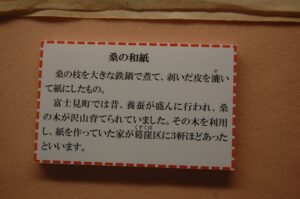 桑の和紙
桑の枝を大きな鉄鍋で煮て、剥いだ皮を漉い
て紙にしたもの。
富士見町では昔、養蚕が盛んに行われ、桑
の木が沢山育てられていました。その木を利用
し、紙を作っていた家が葛窪区に3軒ほどあった
といいます。